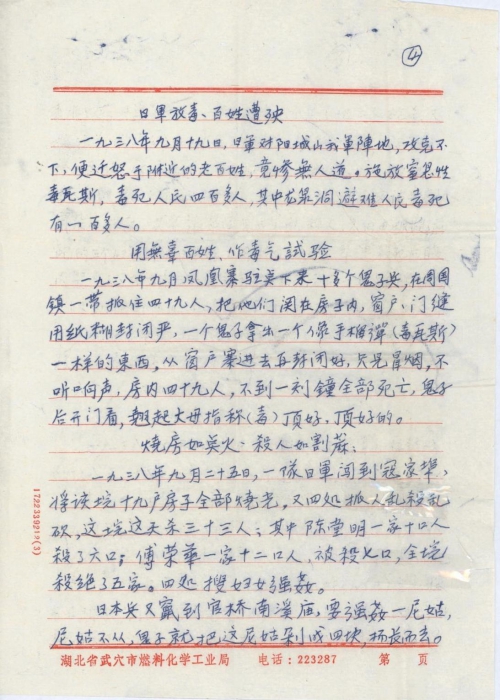 ④
日軍放毒、百姓遭殃
一九三八年九月十九日，日軍对阳城山我軍陣地，攻克不
下，便迁怒于附近的老百姓，竟惨無人道。施放窒息性
毒瓦斯，毒死人民四百多人，其中龙泉洞避难人民毒死
有一百多人。
用無辜百姓、作毒气試验
一九三八年九月凤凰寨驻英下来十多个鬼子兵，在周围
鎮一带抓住四十九人，把他们関在房子内，窗户、门缝
用纸糊封闭严，一个鬼子拿出一个像手榴弹（毒瓦斯）
一样的東西，从窗户塞进去再封闭好，只見冒烟，不
听响声，房内四十九人，不到一刻鐘全部死亡，鬼子
后开门看，翘起大母指称（毒）頂好，頂好的。
燒房如英火·殺人如割蔴：
一九三八年九月二十五日，一隊日軍闯到冠家垸，
将该垸十九户房子全部燒光，又四处抓人乱殺乱
砍，这垸这天杀三十三人；其中陈堂明一家十口人
殺了六口；傅荣華一家十二口人，被殺七口，全垸
殺绝了五家。四处搜妇女强姦。
日本兵又竄到官桥南溪庙，要强姦一尼姑，
尼姑不从，鬼子就把这尼姑剁成四块，扬長而去。
湖北省武穴市燃料化学工业局 电话：223287 第 页